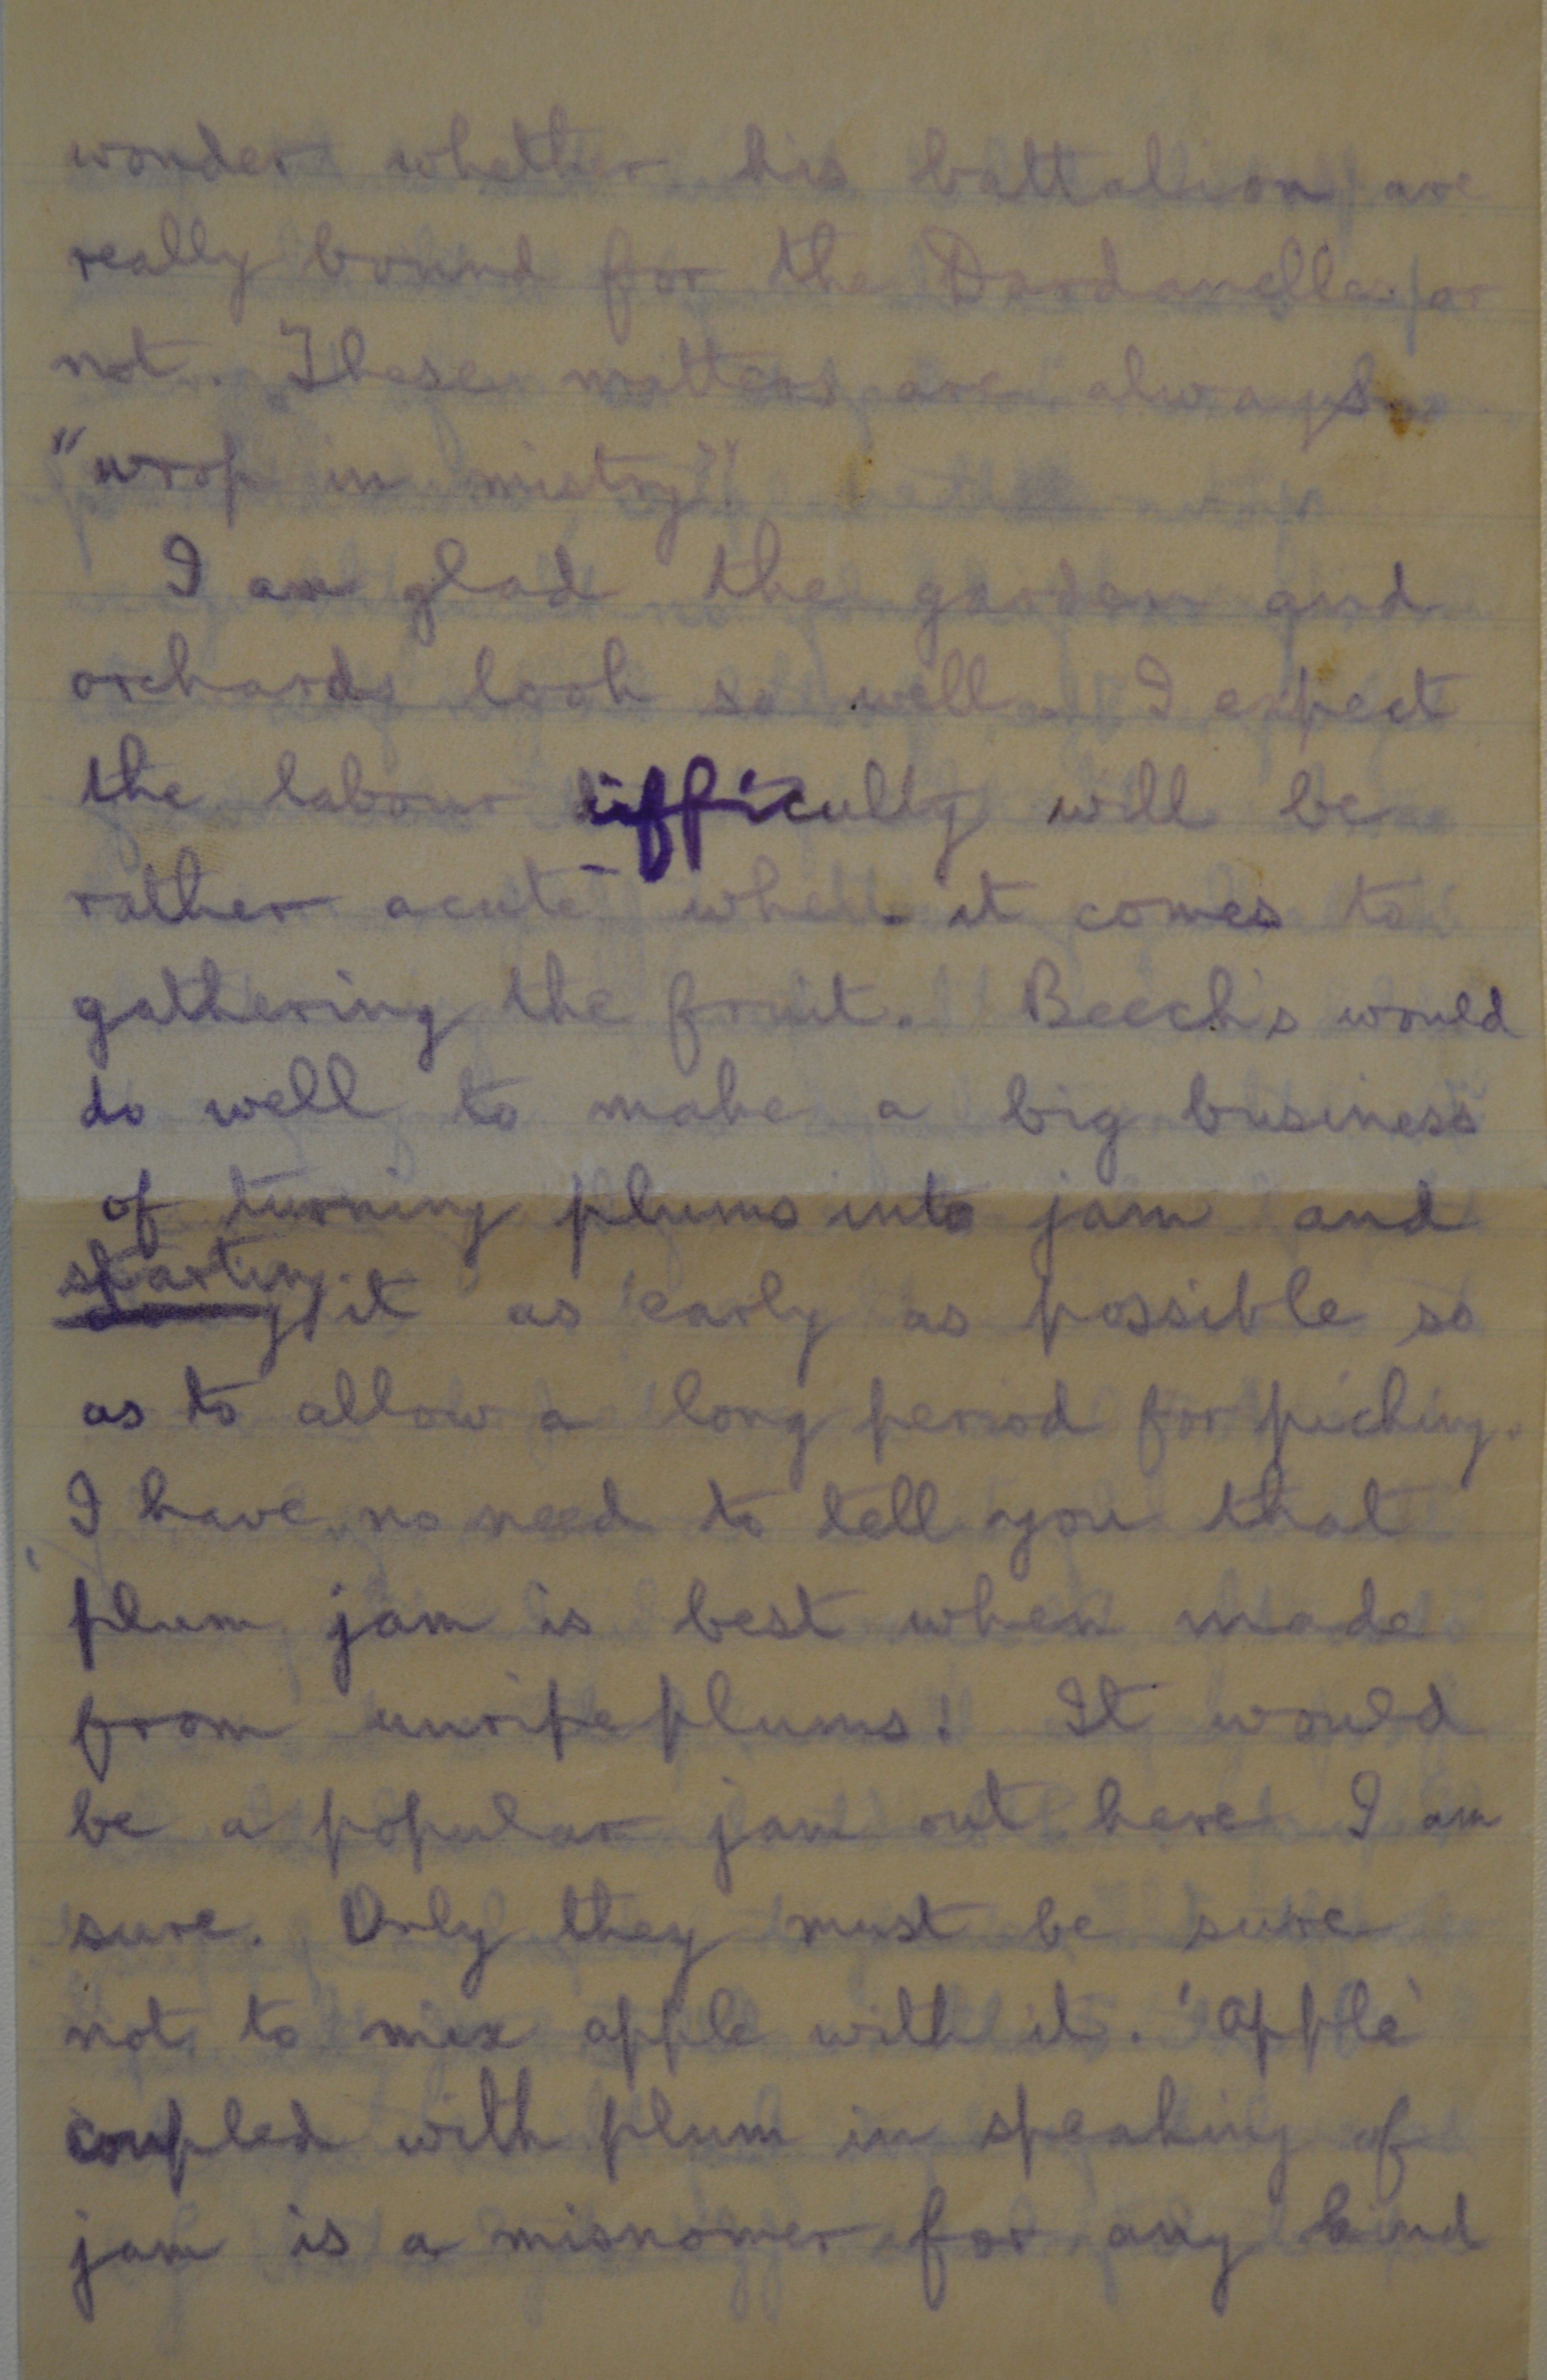 wonder whether his battalion are
really bound for the Dardanelles or
not. These matters are always
"wrop in mistry".
I am glad the garden and
orchards look so well. I expect
the labour difficulty will be
rather acute when it comes to
gathering the fruit. Beech's would
do well to make a big business
of turning plums into jam and
starting it as early as possible so
as to allow a long period for picking.
I have no need to tell you that
plum jam is best when made
from unripe plums! It would
be a popular jam out here I am
sure. Only they must be sure
not to mix apple with it. 'Apple'
coupled with plum in speaking of
jam is a misnomer for any kind